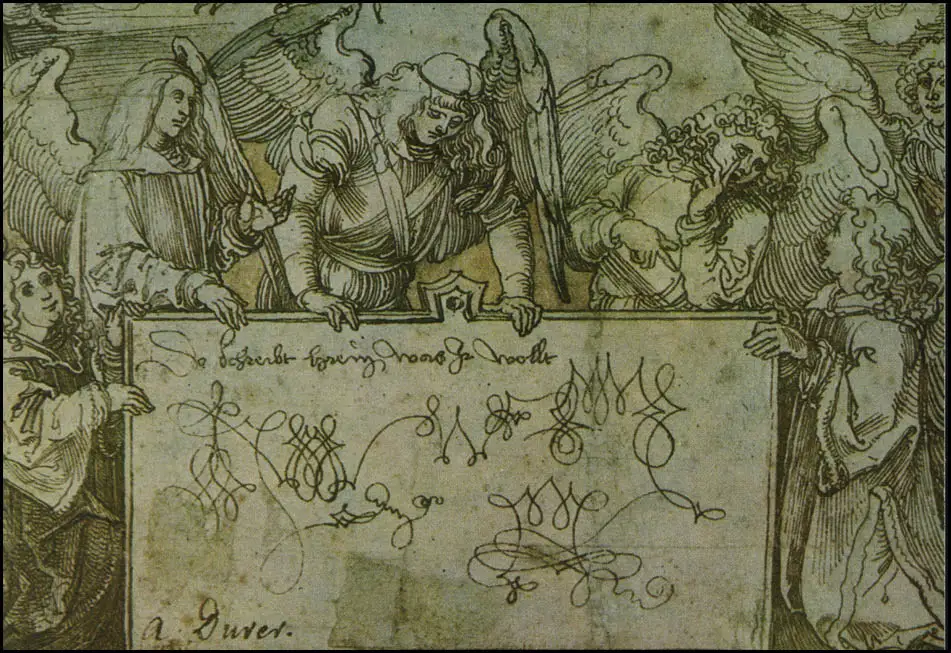 Do schreibt hrein was Ir wollt
A. Durer.